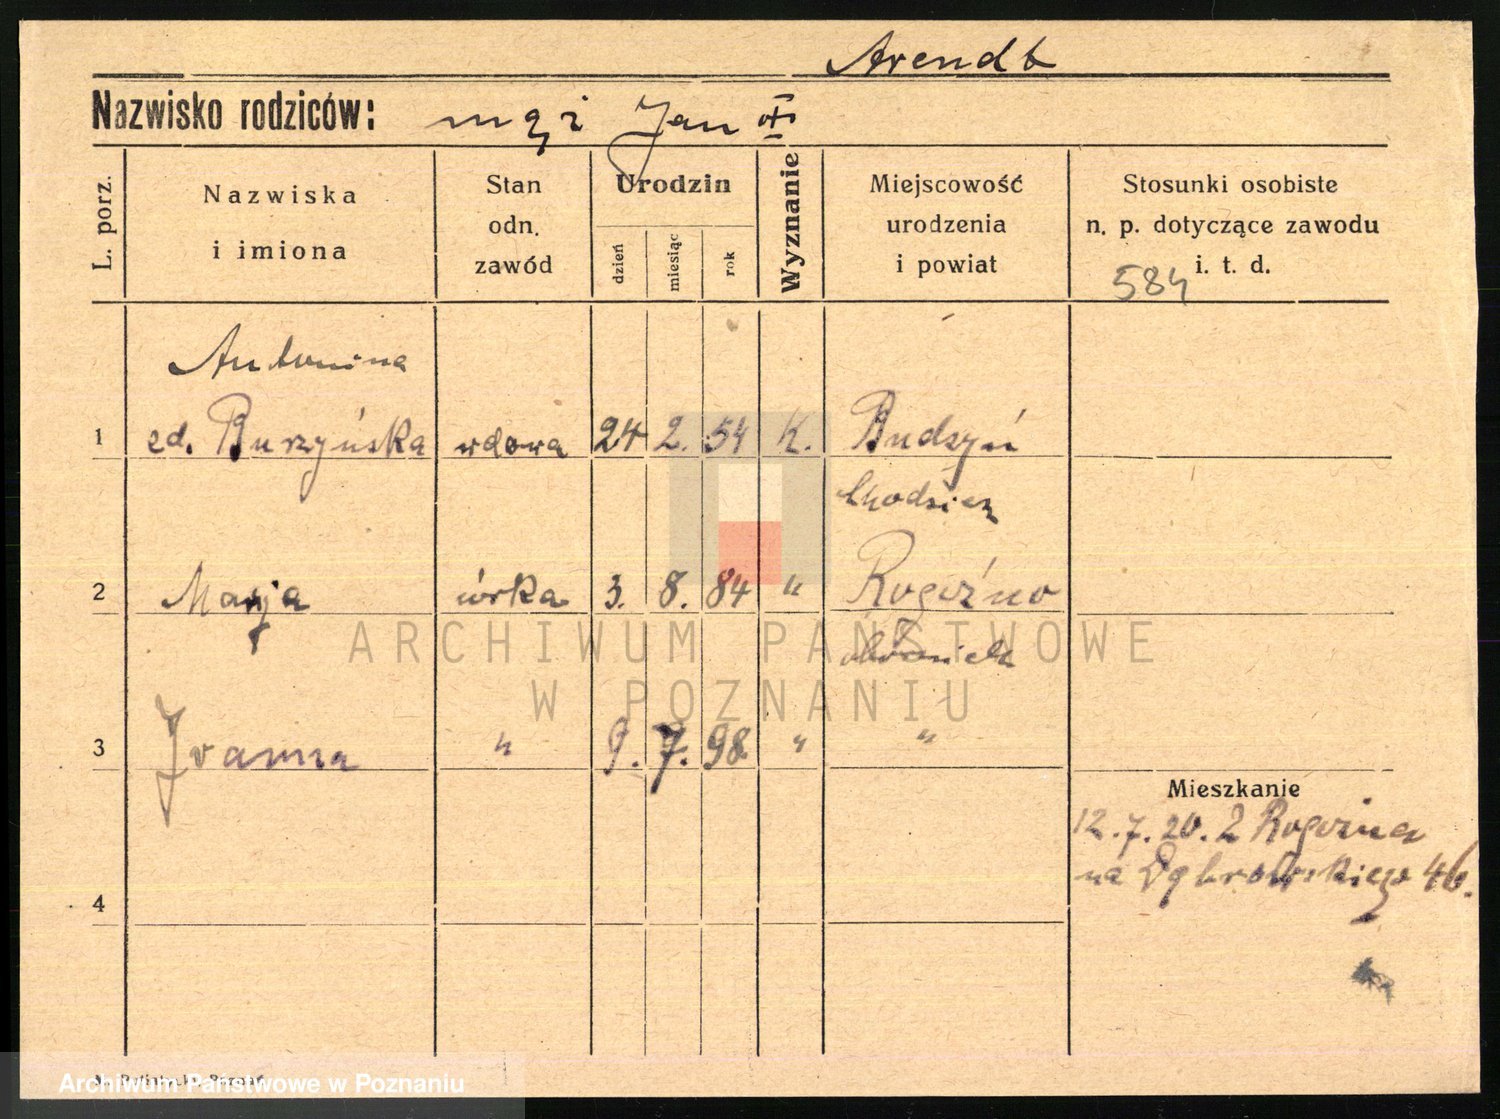 Arendt
Nazwisko rodziców: mąż Jan
L. porz.
Nazwiska
i imiona
Stan
odn.
zawód
Urodzin
dzień
miesiąc
rok
Wyznanie
Miejscowość
urodzenia
i powiat
Stosunki osobiste
n. p. dotyczące zawodu
i. t. d.
584
Antonina
1 zd. Burzyńska wdowa 24 2. 54 K. Budzyń
Chodzież
2 Marja córka 3. 8. 84 " Rogoźno
Obornicki
3 Joanna " 9. 7. 98 " "
Mieszkanie
12.7.20. z Rogoźna
na Dąbrowskiego 46.
4
ARCHIWUM PAŃSTWOWE
W POZNANIU
Archiwum Państwowe w Poznaniu